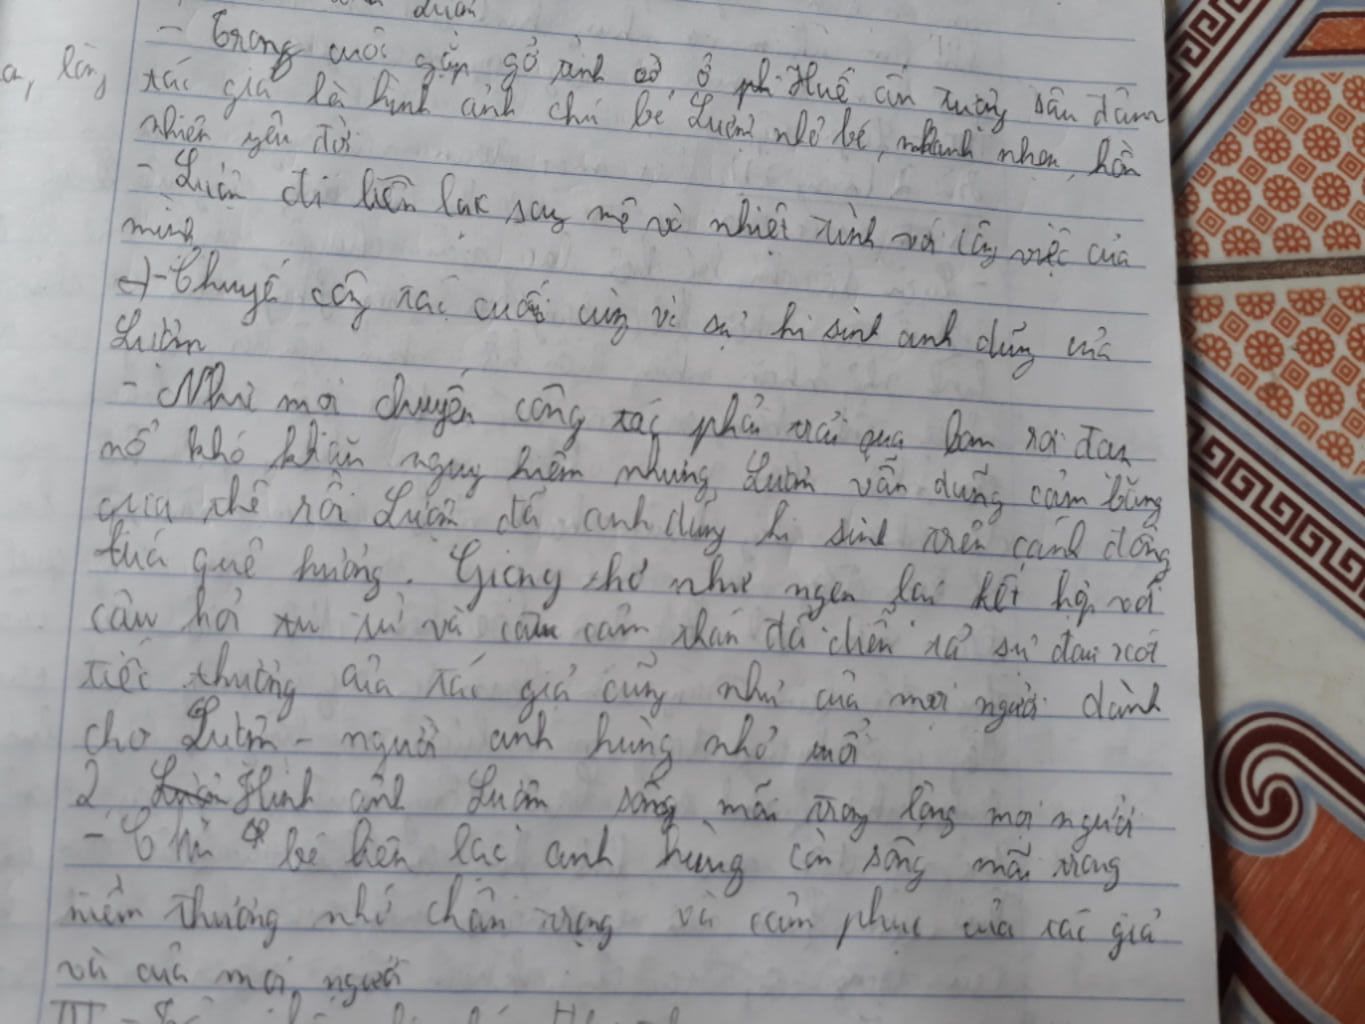 - Trong cuôc gặp gỡ tình cờ ở phố Huế ấn tượng sâu đậm
a, lòng
tác giả là hình ảnh chú bé Lượm nhỏ bé, nhanh nhẹn, hồn
nhiên yêu đời
- Lượm đi liên lạc say mê và nhiệt tình với công việc của
mình
c) - Chuyến công tác cuối cùng và sự hi sinh anh dũng của
Lượm
- Như mọi chuyến công tác phải trải qua bom rơi đạn
nổ khó khăn nguy hiểm nhưng Lượm vẫn dũng cảm băng
qua thế rồi Lượm đã anh dũng hi sinh trên cánh đồng
lúa quê hương. Giọng thơ như ngẹn lại kết hợp với
câu hỏi tu từ và câu cảm thán đã diễn tả sự đau xót
tiếc thương của tác giả cũng như của mọi người dành
cho Lượm - người anh hùng nhỏ tuổi
2 Hình ảnh Lượm sống mãi trong lòng mọi người
- Chú bé liên lạc anh hùng còn sống mãi trong
niềm thương nhớ chân trọng và cảm phục của tác giả
và của mọi người
III -